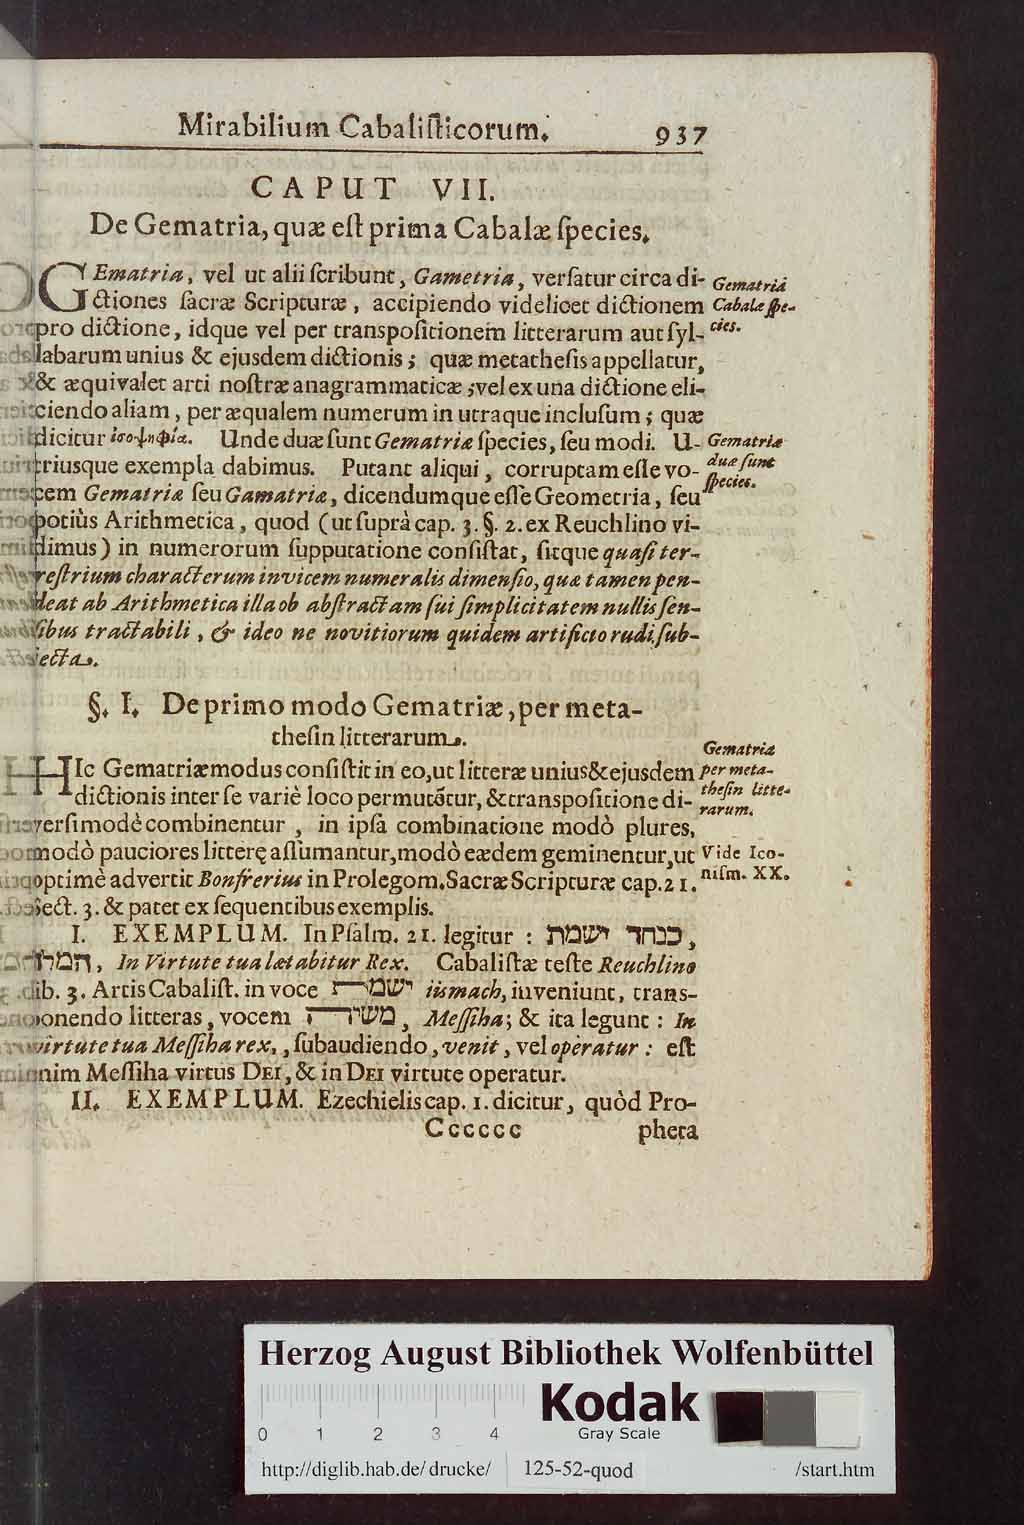 Mirabilium Cabaliſticorum. 937
CAPUT VII.
De Gematria, quæ eſt prima Cabalæ ſpecies.
GEmatria, vel ut alii ſcribunt, Gametria, verſatur circa di-
ctiones ſacræ Scripturæ, accipiendo videlicet dictionem
pro dictione, idque vel per transpoſitionem litterarum aut ſyl-
labarum unius & ejusdem dictionis; quæ metatheſis appellatur,
& æquivalet arti noſtræ anagrammaticæ; vel ex una dictione eli-
ciendo aliam, per æqualem numerum in utraque incluſum; quæ
dicitur ἰσοψηφία. Unde duæ ſunt Gematriæ ſpecies, ſeu modi. U-
triusque exempla dabimus. Putant aliqui, corruptam eſſe vo-
cem Gematriæ ſeu Gamatriæ, dicendumque eſſe Geometria, ſeu
potiùs Arithmetica, quod (ut ſuprà cap. 3. §. 2. ex Reuchlino vi-
dimus) in numerorum ſupputatione conſiſtat, ſitque quaſi ter-
reſtrium characterum invicem numeralis dimenſio, quæ tamen pen-
deat ab Arithmetica illa ob abſtractam ſui ſimplicitatem nullis ſen-
ſibus tractabili, & ideo ne novitiorum quidem artificio rudi ſub-
jecta.
Gematria
Cabalæ ſpe-
cies.
Gematriæ
duæ ſunt
ſpecies.
§. I. De primo modo Gematriæ, per meta-
theſin litterarum.
HIc Gematriæ modus conſiſtit in eo, ut litteræ unius & ejusdem
dictionis inter ſe variè loco permutētur, & transpoſitione di-
verſimodè combinentur, in ipſâ combinatione modò plures,
modò pauciores litterę aſſumantur, modò eædem geminentur, ut
optimè advertit Bonfrerius in Prolegom. Sacræ Scripturæ cap. 21.
ſect. 3. & patet ex ſequentibus exemplis.
Gematria
per meta-
theſin litte-
rarum.
Vide Ico-
niſm. XX.
I. EXEMPLUM. In Pſalm. 21. legitur : כנחד ישמת,
המלך, In Virtute tua lætabitur Rex. Cabaliſtæ teſte Reuchlino
lib. 3. Artis Cabaliſt. in voce ישמח iismach, inveniunt, trans-
ponendo litteras, vocem משיח, Meſſiha; & ita legunt : In
virtute tua Meſſiha rex, ſubaudiendo, venit, vel operatur : eſt
enim Meſſiha virtus DEI, & in DEI virtute operatur.
II. EXEMPLUM. Ezechielis cap. 1. dicitur, quòd Pro-
Cccccc pheta
Herzog August Bibliothek Wolfenbüttel
Kodak
Gray Scale
0 1 2 3 4
http://diglib.hab.de/drucke/ 125-52-quod /start.htm